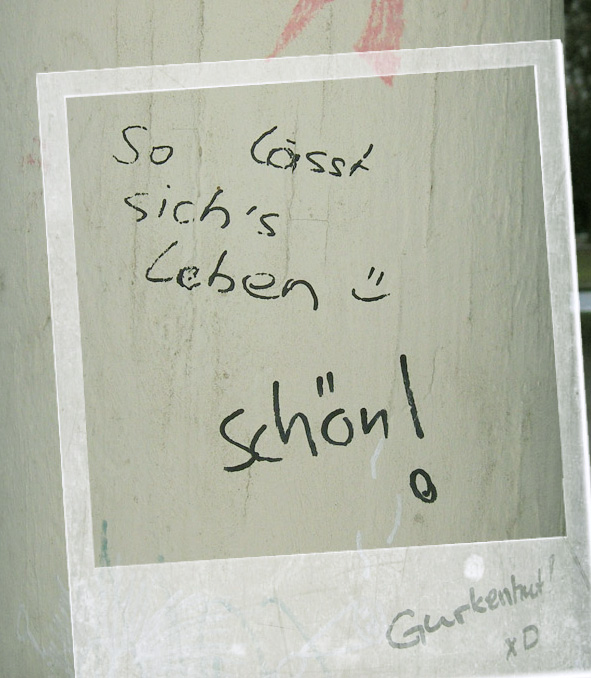 So lässt
sich's
Leben :)
schön!
Gurkenhut!
xD